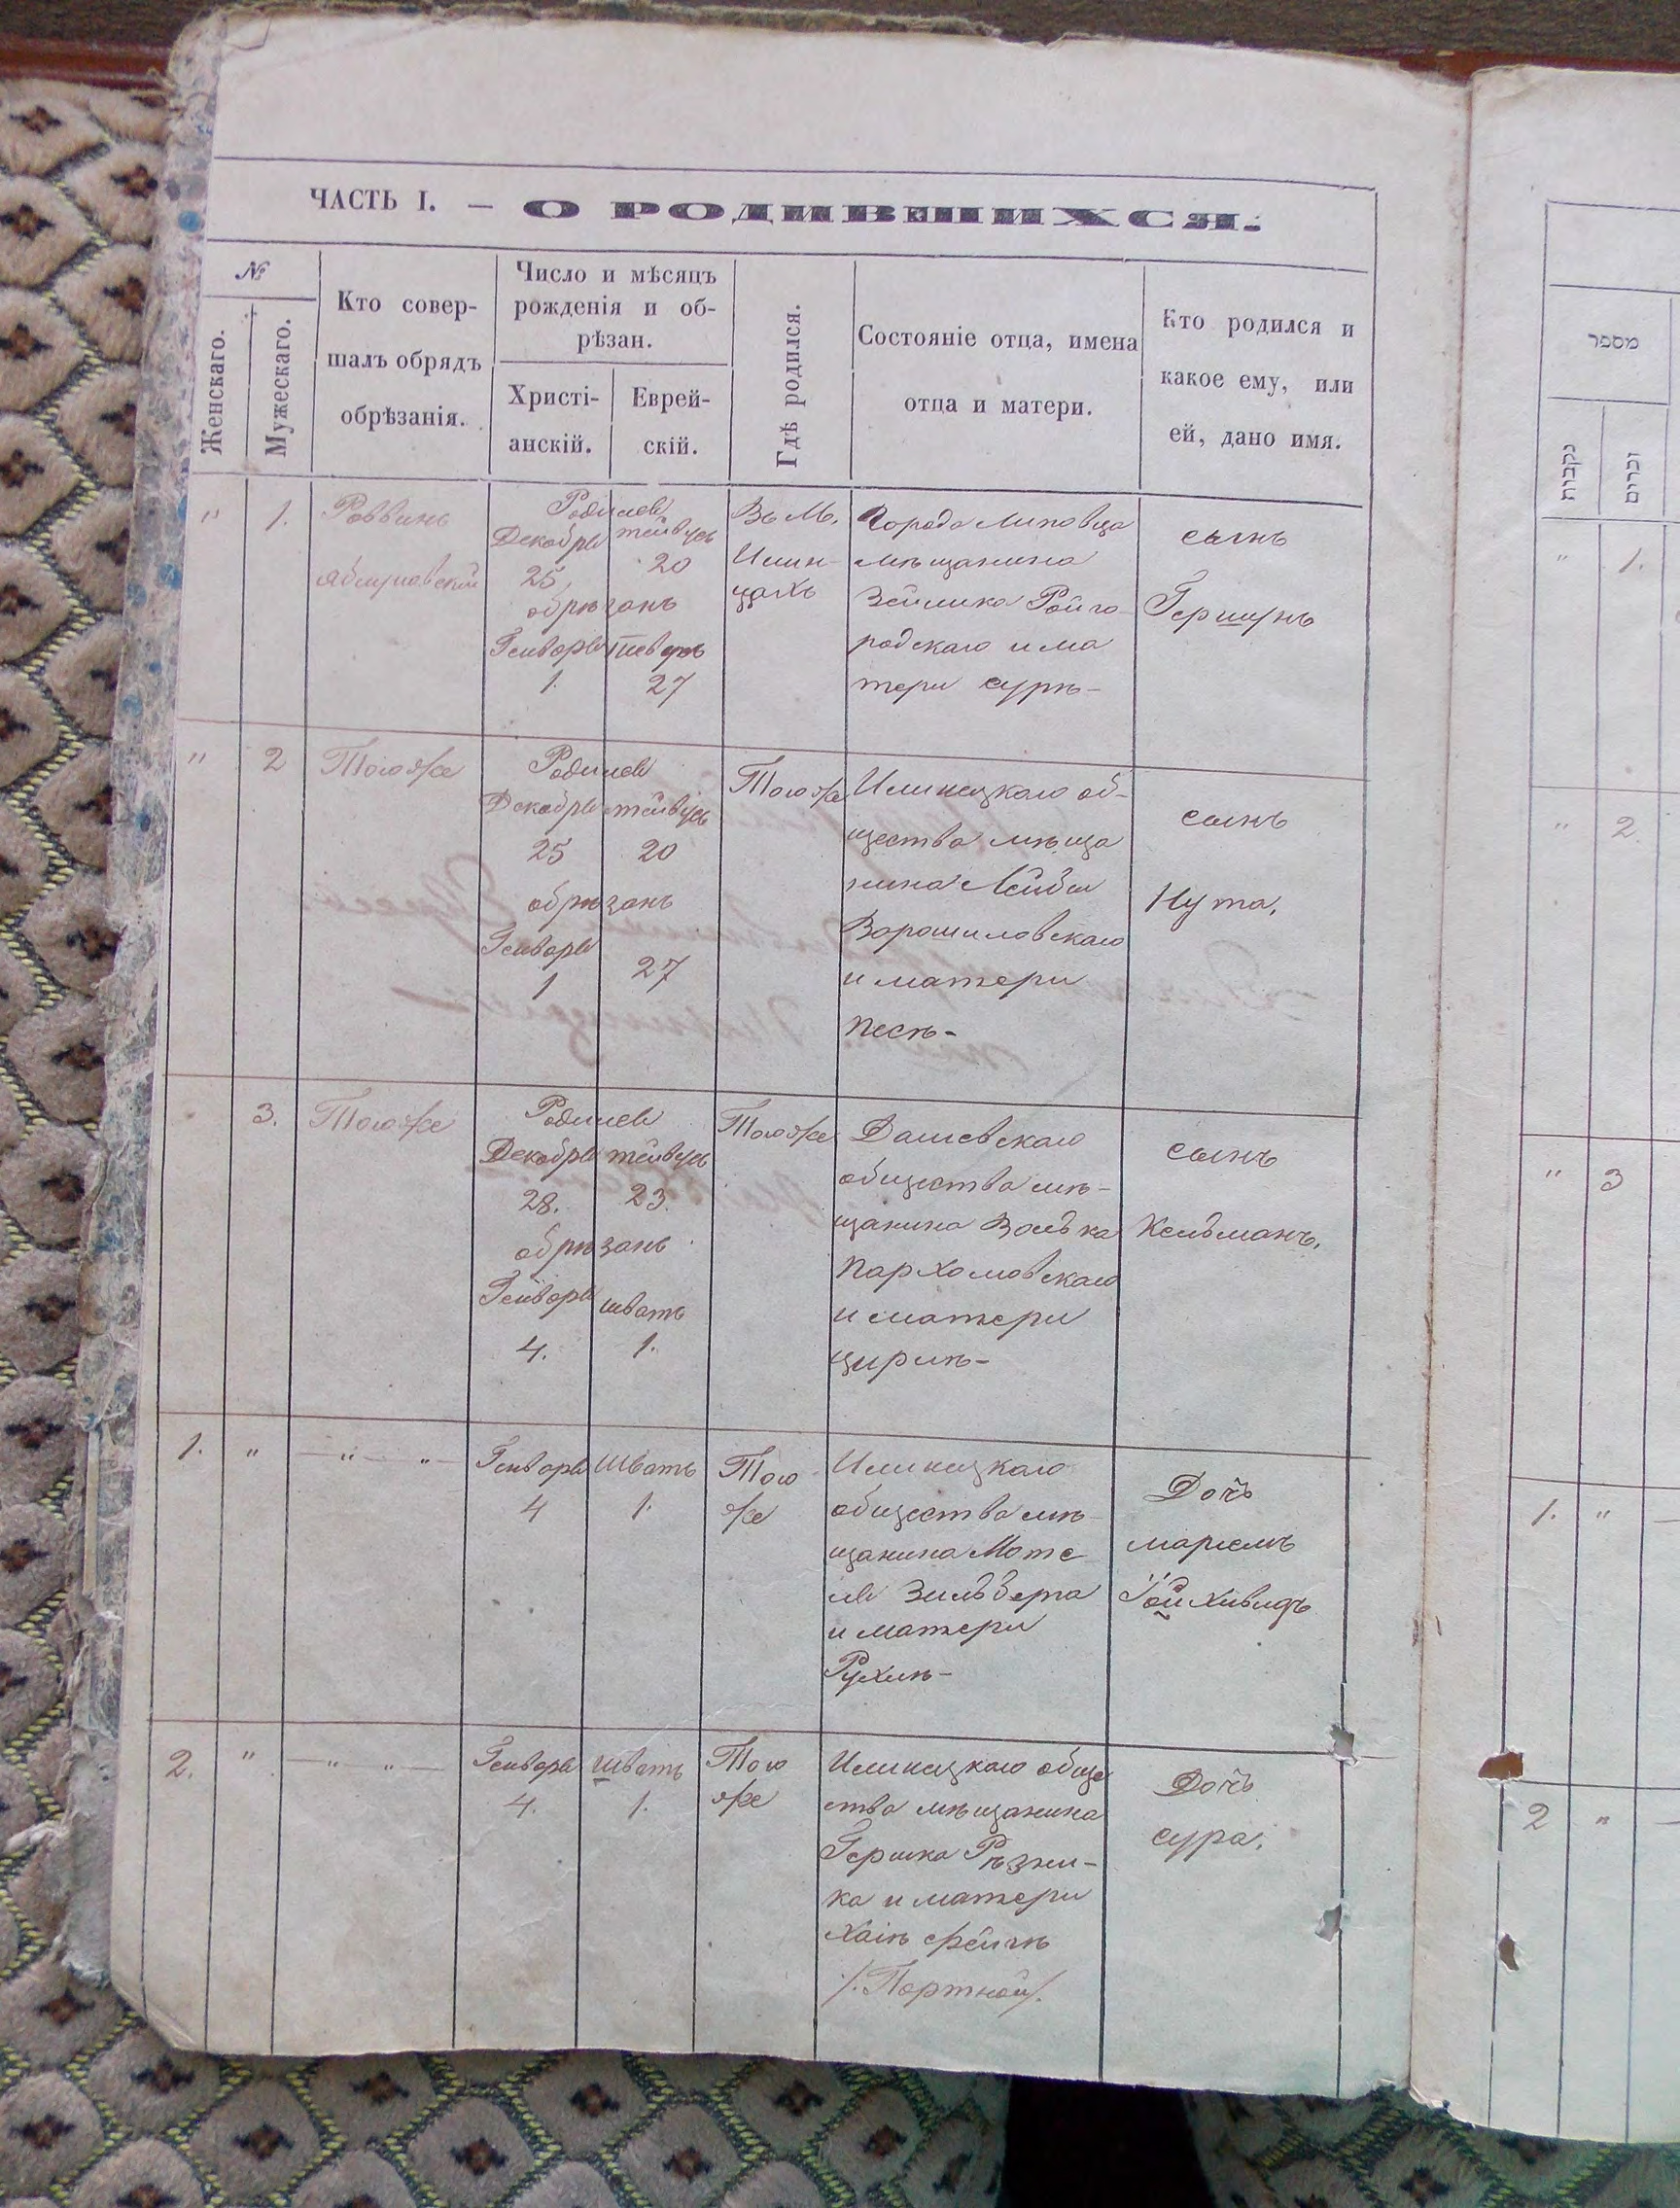 ЧАСТЬ I. — О РОДИВШИХСЯ.
№
Женскаго.
Мужескаго.
Кто совер-
шалъ обрядъ
обрѣзанія.
Число и мѣсяцъ
рожденія и об-
рѣзан.
Христі-
анскій.
Еврей-
скій.
Гдѣ родился.
Состояніе отца, имена
отца и матери.
Кто родился и
какое ему, или
ей, дано имя.
" 1.
Раввинъ
Родился
Декабря
25
тейвусъ
20
обрѣзанъ
Генваря
1.
27
Въ М.
Илин-
цахъ
Города Липовца
мѣщанина
Зейлика Райго-
родскаго и ма
тери сурѣ-
сынъ
Гершунъ
" 2
Тогоже
Родился
Декабря
25
тейвусъ
20
обрѣзанъ
Генваря
1
27
Тогоже
Илинецкаго об-
щества мѣща
нина Лейби
Ворошиловскаго
и матери
песѣ-
сынъ
Нута,
3.
Тогоже
Родился
Декабря
28.
тейвусъ
23.
обрѣзанъ
Генваря
4.
шватъ
1.
Тогоже
Дашевскаго
общества мѣ-
щанина Волька
Пархомовскаго
и матери
цирлѣ-
сынъ
Кельманъ,
1. " — " — " —
Генваря
4
Шватъ
1.
Того
же
Илинецкаго
общества мѣ
щанина Моте
ля Зильбера
и матери
Рухлѣ-
Дочь
маріемъ
2. " — " " —
Генваря
4.
шватъ
1.
Того
же
Илинецкаго обще
ства мѣщанина
Гершка Рѣзни-
ка и матери
Хаіѣ фейгѣ
/. Портной /.
Дочь
сура.
מספר
נקבות
זכרים
" 1.
" 2.
" 3
1. " —
2 " —